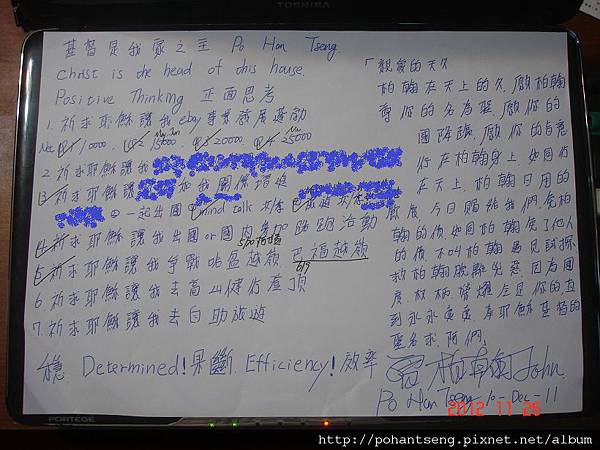 TOSHIBA
基督是我家之主 Po Han Tseng
Christ is the head of this house.
Positive Thinking 正面思考
1. 祈求耶穌讓我 ebay 事業發展運動
Q1 10000. Q2 15000 Q3 20000 Q4 25000
2. 祈求耶穌讓我
3. 祈求耶穌讓 和我關係
一起出國 mind talk
4. 祈求耶穌讓我出國 or 國內參加路跑活動
5. 祈求耶穌讓我爭戰 越嶺. 巴福越嶺
6. 祈求耶穌讓我去高山健行
7. 祈求耶穌讓我去自助旅遊
Determined! 果斷 Efficiency! 效率
「親愛的天父
柏翰在天上的父. 願柏翰
尊你的名為聖. 願你的
國降臨. 願你的旨意
行在柏翰身上. 如同行
在天上. 柏翰日用的
飲食. 今日賜給我們. 免柏
翰的債. 如同柏翰免了他人
的債. 不叫柏翰遇見試探
救柏翰脫離兇惡. 因為國
度. 權柄. 榮耀全是你的. 直
到永永遠遠. 奉耶穌基督的
聖名求. 阿們.
曾柏翰 John.
Po Han Tseng 10-Dec-11
2012 11 26
PORTEGE
http://pohantseng.pixnet.net/album